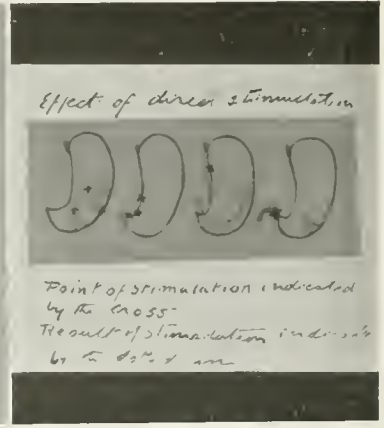 Effect of direct stimulation
Point of stimulation indicated
by the cross
Result of stimulation
by the